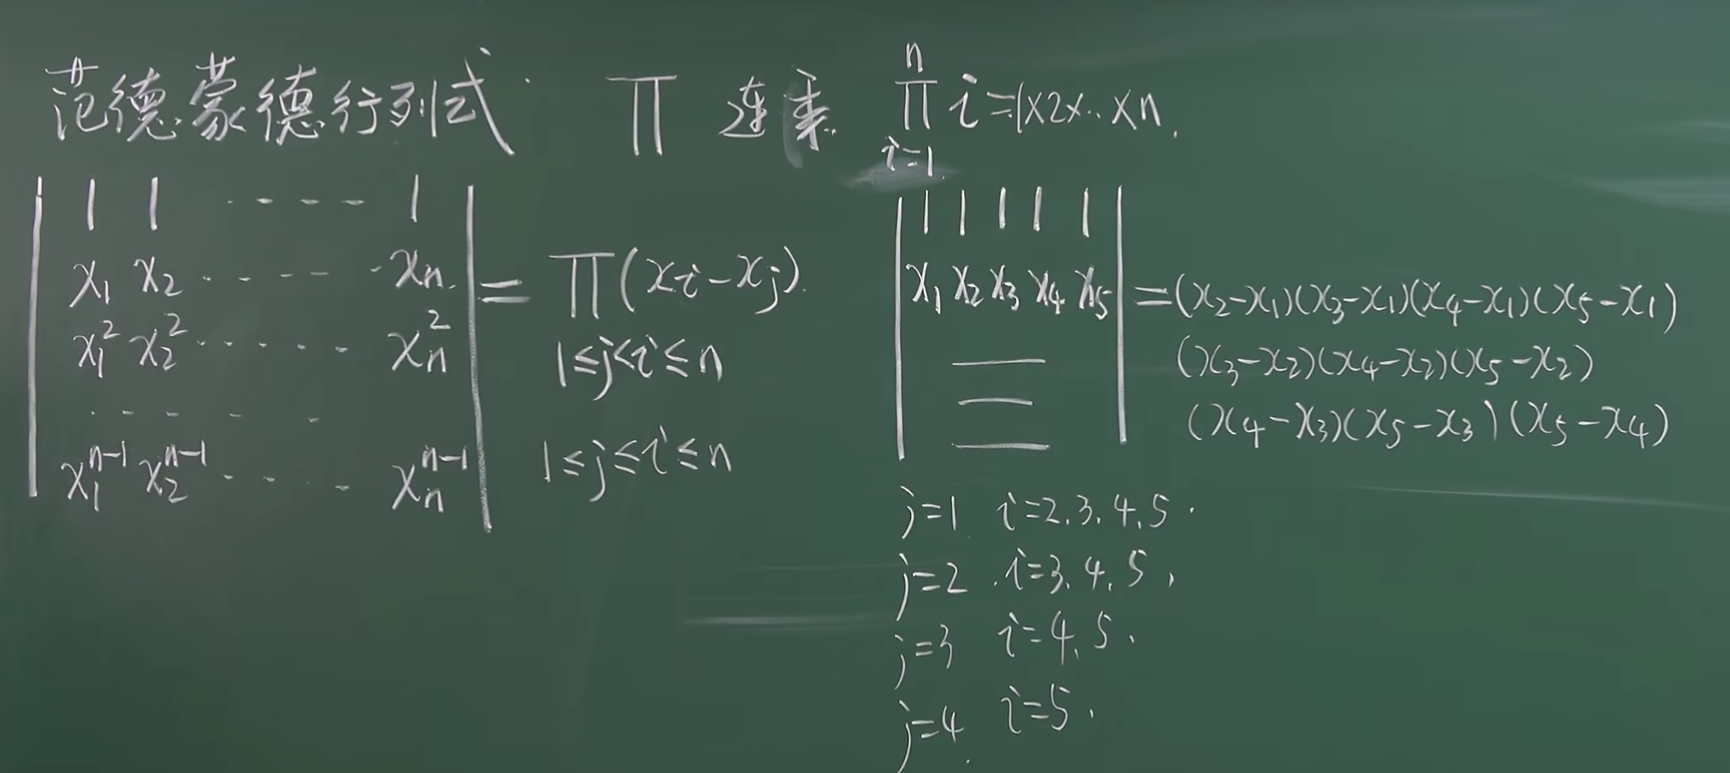 范德蒙德行列式 ∏ 连乘 ∏ⁿᵢ₌₁ i=1×2×..×n.
| 1 1 ---- 1 |
| x₁ x₂ ------ xₙ |
| x₁² x₂² ······ xₙ² |
| ····· |
| x₁ⁿ⁻¹ x₂ⁿ⁻¹ ····· xₙⁿ⁻¹ |
= ∏(xᵢ-xⱼ).
1≤j<i≤n
1≤j≤i≤n
| 1 1 1 1 1 |
| x₁ x₂ x₃ x₄ x₅ |
=(x₂-x₁)(x₃-x₁)(x₄-x₁)(x₅-x₁)
(x₃-x₂)(x₄-x₂)(x₅-x₂)
(x₄-x₃)(x₅-x₃)(x₅-x₄)
j=1 i=2,3,4,5.
j=2 i=3,4,5,
j=3 i=4,5.
j=4 i=5.